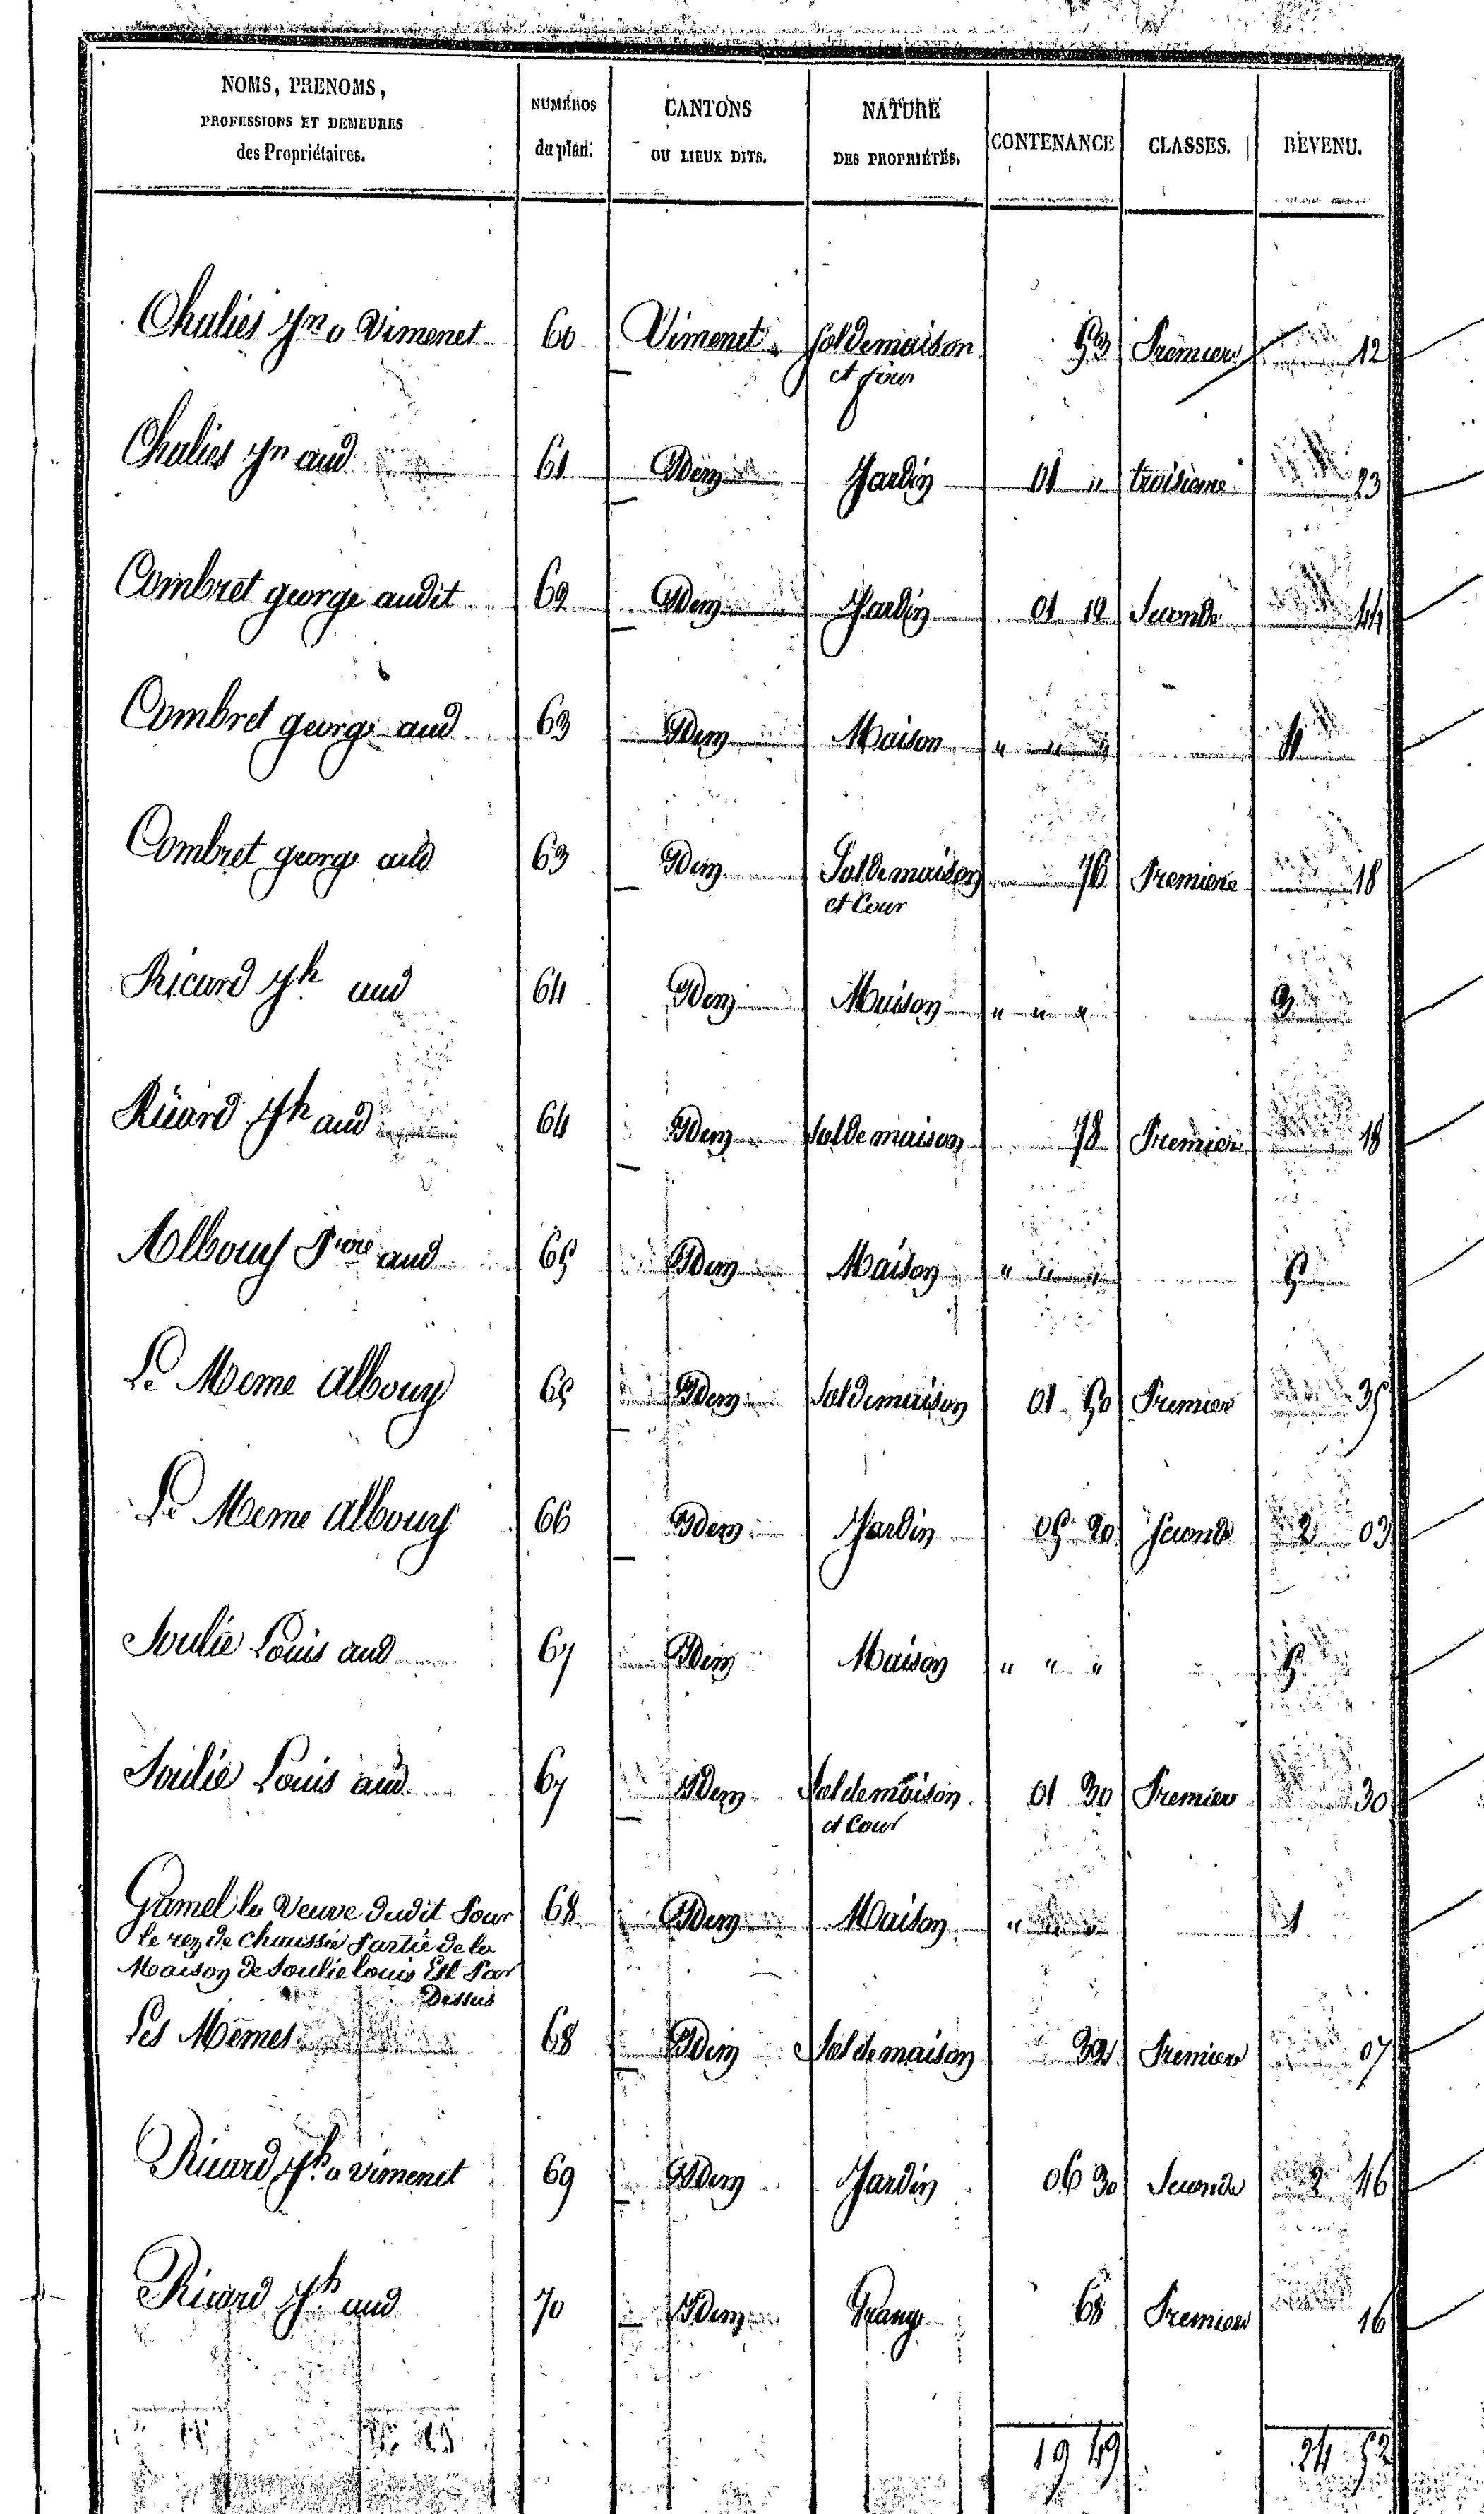 NOMS, PRENOMS, PROFESSIONS ET DEMEURES des Propriétaires. | NUMÉROS du plan. | CANTONS OU LIEUX DITS. | NATURE DES PROPRIÉTÉS. | CONTENANCE | CLASSES. | REVENU.
Chaliès Jn a Vimenet 60 Vimenet Sol de maison 53 Premiere 12
et four
Chaliès Jn aud 61 Idem Jardin 01 " troisieme 23
Combret george audit 62 Idem Jardin 01 12 Seconde 44
Combret george aud 63 Idem Maison " " " 4
Combret george aud 63 Idem Sol de maison 76 Premiere 18
et Cour
Ricard Jh aud 64 Idem Maison " " " 3
Ricard Jh aud 64 Idem Sol de maison 78 Premiere 18
Albouy Pierre aud 65 Idem Maison " " " 5
Le Meme Albouy 65 Idem Sol de maison 01 50 Premiere 35
Le Meme Albouy 66 Idem Jardin 05 20 Seconde 2 03
Soulié Louis aud 67 Idem Maison " " " 5
Soulié Louis aud 67 Idem Sol de maison 01 30 Premiere 30
et Cour
Gamel la Veuve dudit Pour 68 Idem Maison " " " 1
le rez de chaussée Partie de la
Maison de Soulié louis Est Par
Dessus
Les Mêmes 68 Idem Sol de maison 32 Premiere 07
Ricard Jh a Vimenet 69 Idem Jardin 06 30 Seconde 2 46
Ricard Jh aud 70 Idem Grange 68 Premiere 16
19 49 24 52